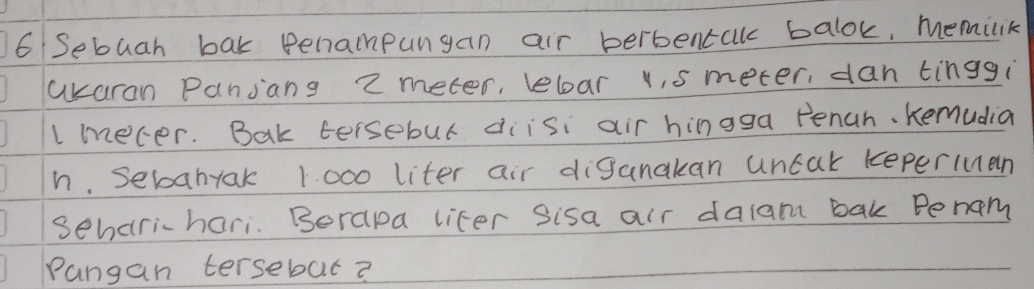 6 Sebuah bak Penampungan air berbentuk balok, Memilik
ukuran Panjang 2 meter, lebar 1,5 meter, dan tinggi
1 meter. Bak tersebut diisi air hingga Penuh. Kemudia
n, Sebanyak 1.000 liter air digunakan untuk keperluan
sehari-hari. Berapa liter sisa air dalam bak Penam
Pungan tersebut?